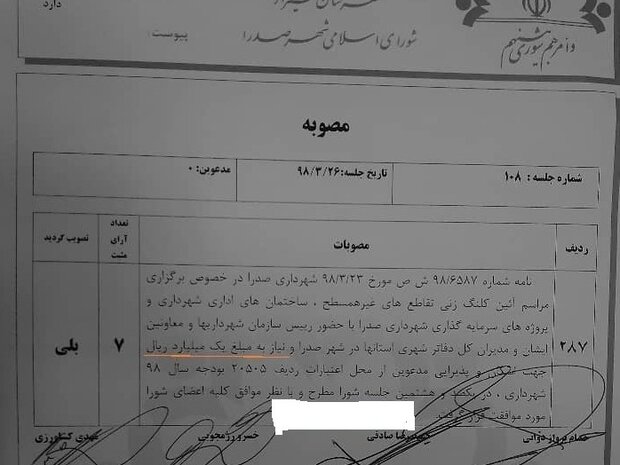 دارد
شورای اسلامی شهر صدرا
پیوست:
وامرهم شوری بینهم
مصوبه
شماره جلسه : ۱۰۸
تاریخ جلسه:۹۸/۳/۲۶
مدعوین: ۰
ردیف
مصوبات
تعداد آرای مثبت
تصویب گردید
۲۸۷
نامه شماره ۹۸/۶۵۸۷ ش ص مورخ ۹۸/۳/۲۳ شهرداری صدرا در خصوص برگزاری
مراسم آئین کلنگ زنی تقاطع های غیرهمسطح ، ساختمان های اداری شهرداری و
پروژه های سرمایه گذاری شهرداری صدرا با حضور رییس سازمان شهرداریها و معاونین
ایشان و مدیران کل دفاتر شهری استانها در شهر صدرا و نیاز به مبلغ یک میلیارد ریال
جهت اسکان و پذیرایی مدعوین از محل اعتبارات ردیف ۲۰۵۰۵ بودجه سال ۹۸
شهرداری ، در یکصد و هشتمین جلسه شورا مطرح و با نظر موافق کلیه اعضای شورا
مورد موافقت قرار گرفت.
۷
بلی
صادقی
خسرو رزمجویی
مهدی کشاورزی